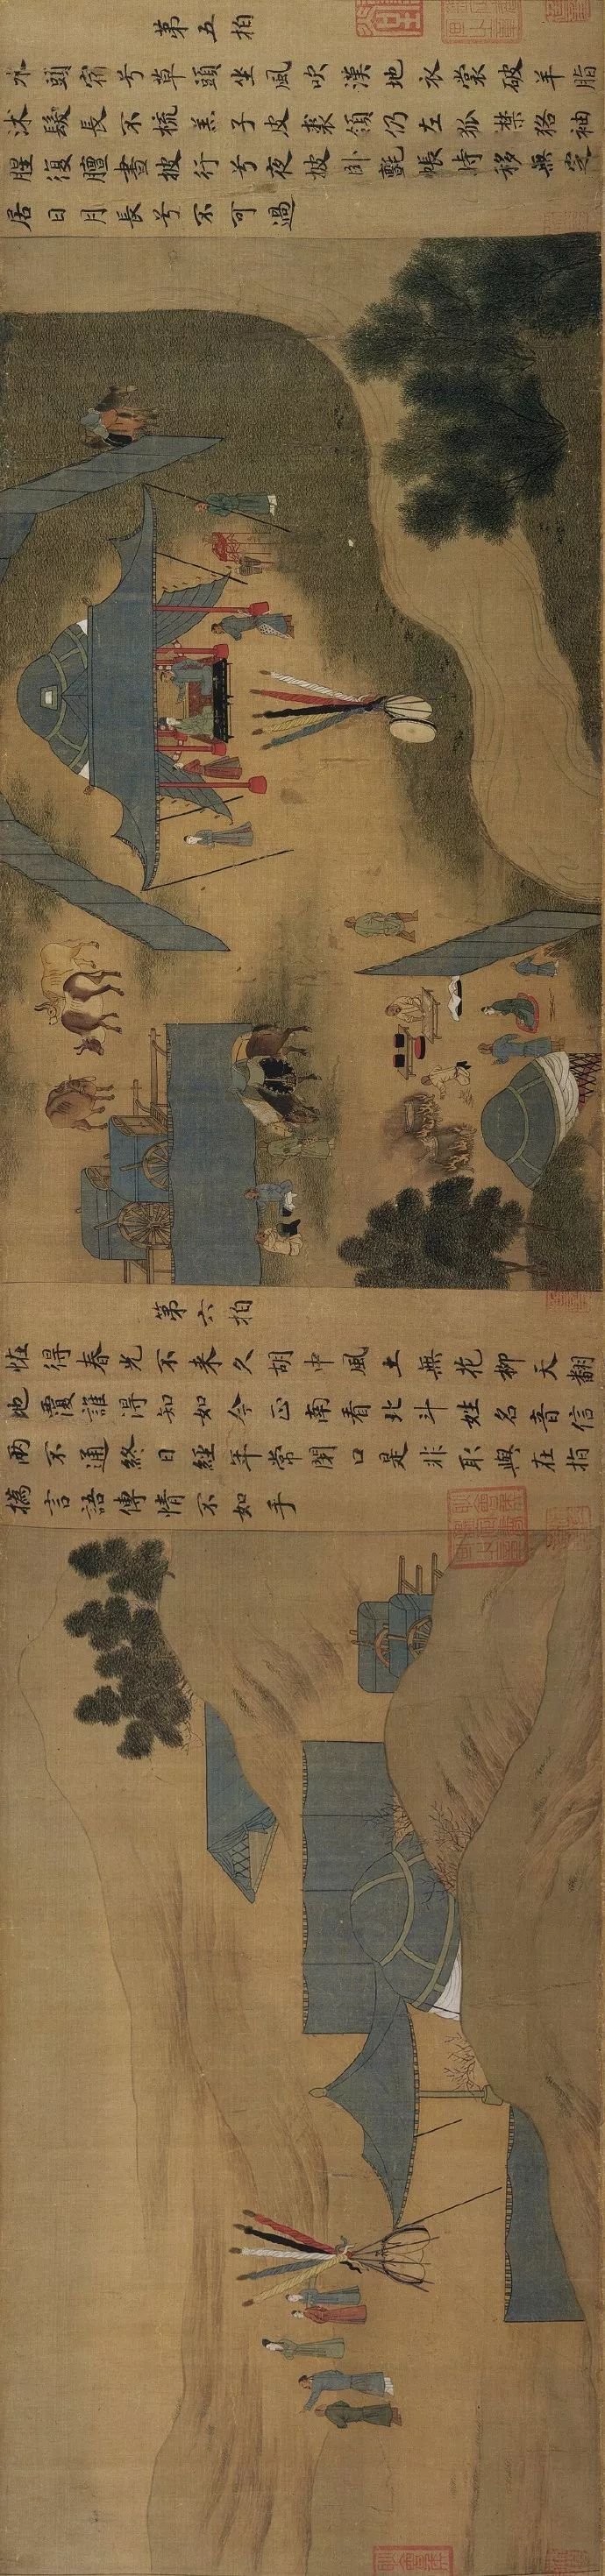 第五拍
水頭宿兮草頭坐風吹漢地衣裳破羊脂
沐髮長不梳羔子皮裘領仍左狐襟貉袖
腥復膻晝披行兮夜披臥氈帳時移無定
居日月長兮不可過
第六拍
恠得春光不来久胡中風土無花柳天翻
地覆誰得知如今正南看北斗姓名音信
兩不通終日經年常閉口是非取與在指
撝言語傳情不如手